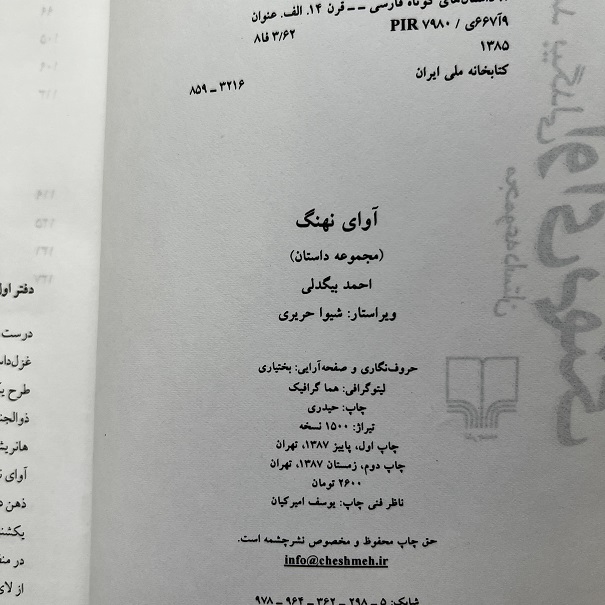 داستان‌های کوتاه فارسی ــ قرن ۱۴. الف. عنوان
۹آ۶۶۷ی / PIR ۷۹۸۰
۸فا ۳/۶۲
۱۳۸۵
کتابخانه ملی ایران
۳۲۱۶ ــ ۸۵۹
آوای نهنگ
(مجموعه داستان)
احمد بیگدلی
ویراستار: شیوا حریری
حروف‌نگاری و صفحه‌آرایی: بختیاری
لیتوگرافی: هما گرافیک
چاپ: حیدری
تیراژ: ۱۵۰۰ نسخه
چاپ اول، پاییز ۱۳۸۷، تهران
چاپ دوم، زمستان ۱۳۸۷، تهران
۲۶۰۰ تومان
ناظر فنی چاپ: یوسف امیرکیان
حق چاپ محفوظ و مخصوص نشرچشمه است.
info@cheshmeh.ir
شابک: ۵ ــ ۲۹۸ ــ ۳۶۲ ــ ۹۶۴ ــ ۹۷۸
دفتر اول
درست
طرح
آوای
ذهن
در
از لای